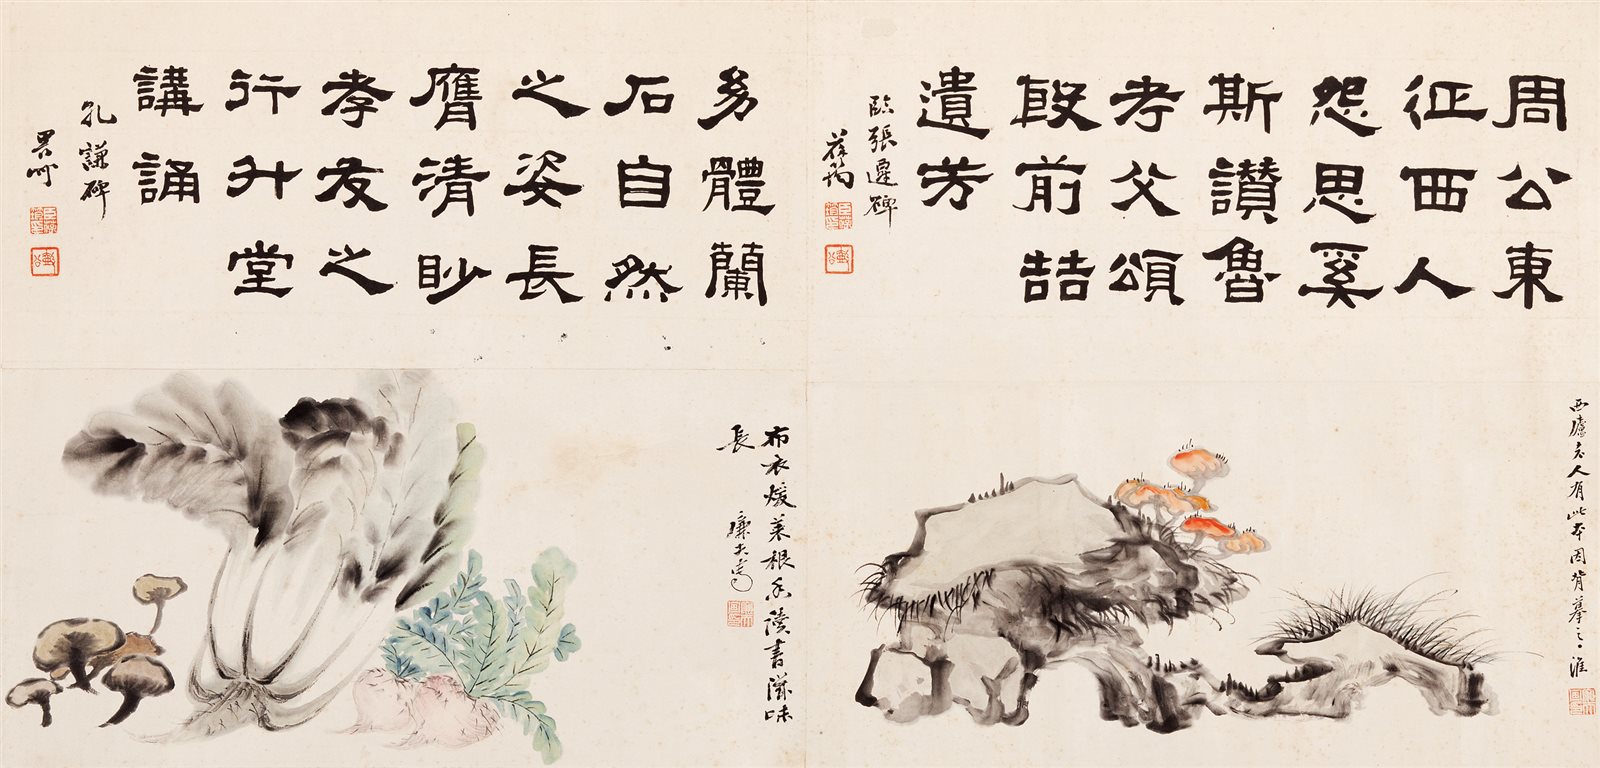 周公東
征西人
怨思奚
斯讚魯
考父頌
殷前喆
遺芳
臨張遷碑
㓜體蘭
石自然
之姿長
膺清眇
孝友之
行升堂
講誦
孔謙碑
西廬老人有此本因背摹之淮
布衣煖菜根香讀書滋味
長
廉夫寫